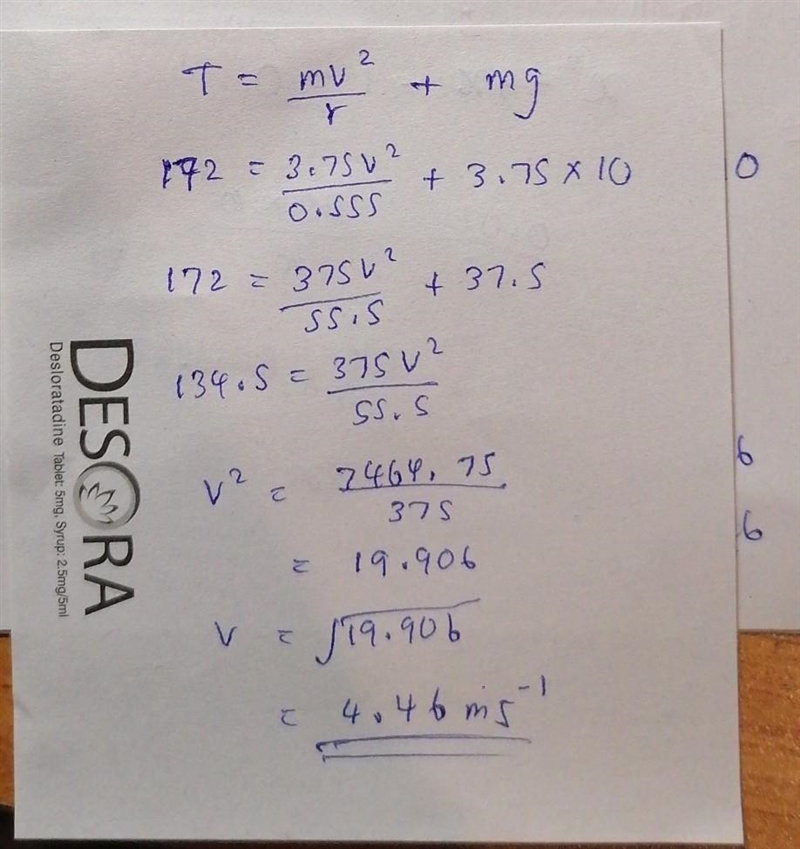 T = mv²/r + mg
172 = 3.75v²/0.555 + 3.75 × 10
172 = 375v²/55.5 + 37.5
134.5 = 375v²/55.5
v² = 7464.75/375
= 19.906
v = √19.906
= 4.46 ms⁻¹
DESORA
Desloratadine Tablet: 5mg, Syrup: 2.5mg/5ml
0
6
6